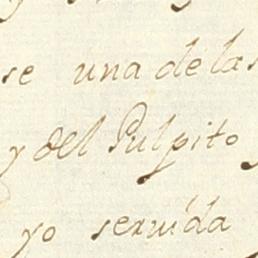 se una de las
y del Pulpito
yo servida